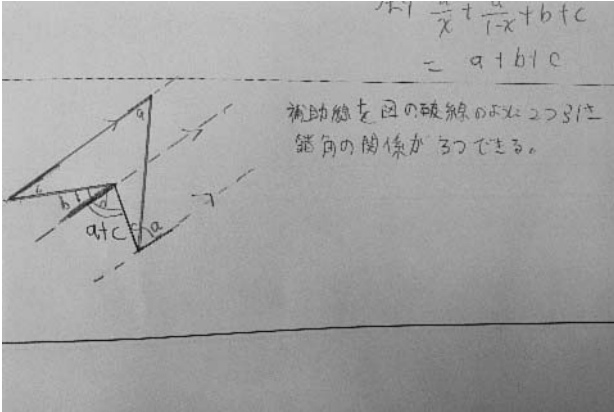 より a/x + a/(1-x) + b + c
= a + b + c
補助線を図の破線のように2つ引き
錯角の関係が3つできる。
a
b
b
a
a+c
c
a